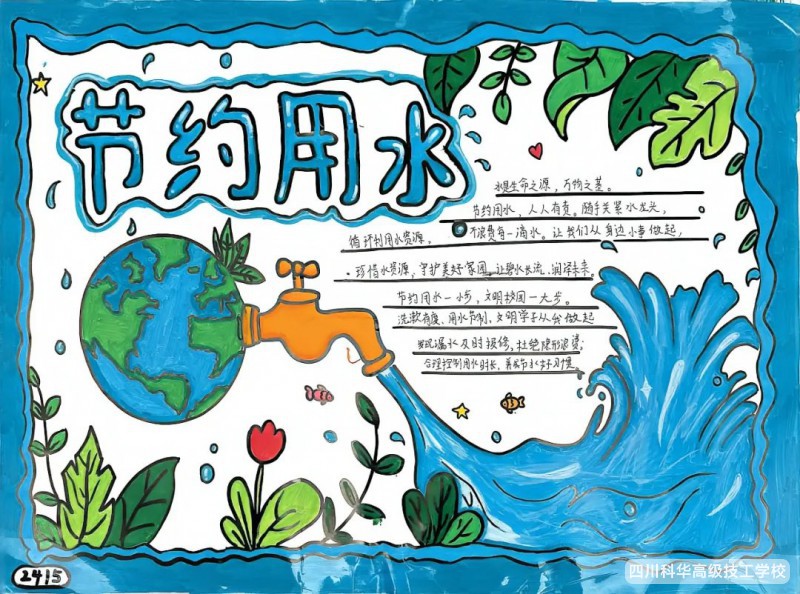 节约用水
水是生命之源，万物之基。
节约用水，人人有责。随手关紧水龙头，
不浪费每一滴水。让我们从身边小事做起，
循环利用水资源，
·珍惜水资源，守护美好家园。让碧水长流、润泽未来。
节约用水一小步，文明校园一大步。
洗漱有度、用水节制，文明学子从我做起
发现漏水及时报修，杜绝隐形浪费；
合理控制用水时长，养成节水好习惯。
2415
四川科华高级技工学校